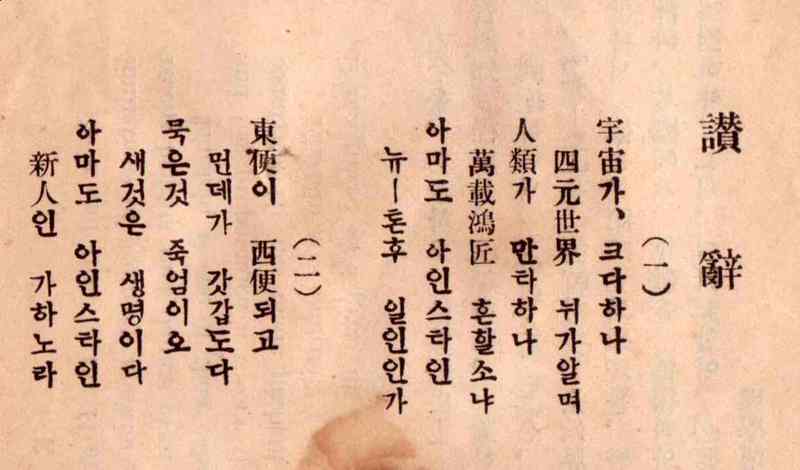 讚辭
(一)
宇宙가、크다하나
四元世界 뉘가알며
人類가 만타하나
萬載鴻匠 흔할소냐
아마도 아인스타인
뉴―톤후 일인인가
(二)
東便이 西便되고
먼데가 갓갑도다
묵은것 죽엄이오
새것은 생명이다
아마도 아인스타인
新人인 가하노라